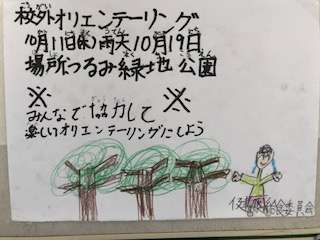 校外オリエンテーリング
10月11日(水)雨天10月19日
場所つるみ緑地公園
※ ※
みんなで協力して
楽しいオリエンテーリングにしよう
健康給食委員会